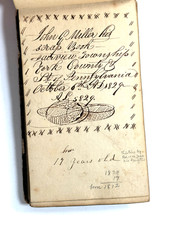 John C Miller His
Scrap Book
Fairview Township
York County
St of Pennsylvania
October 6th AD 1829
AD 1829
17 years old
1829
17
born 1812